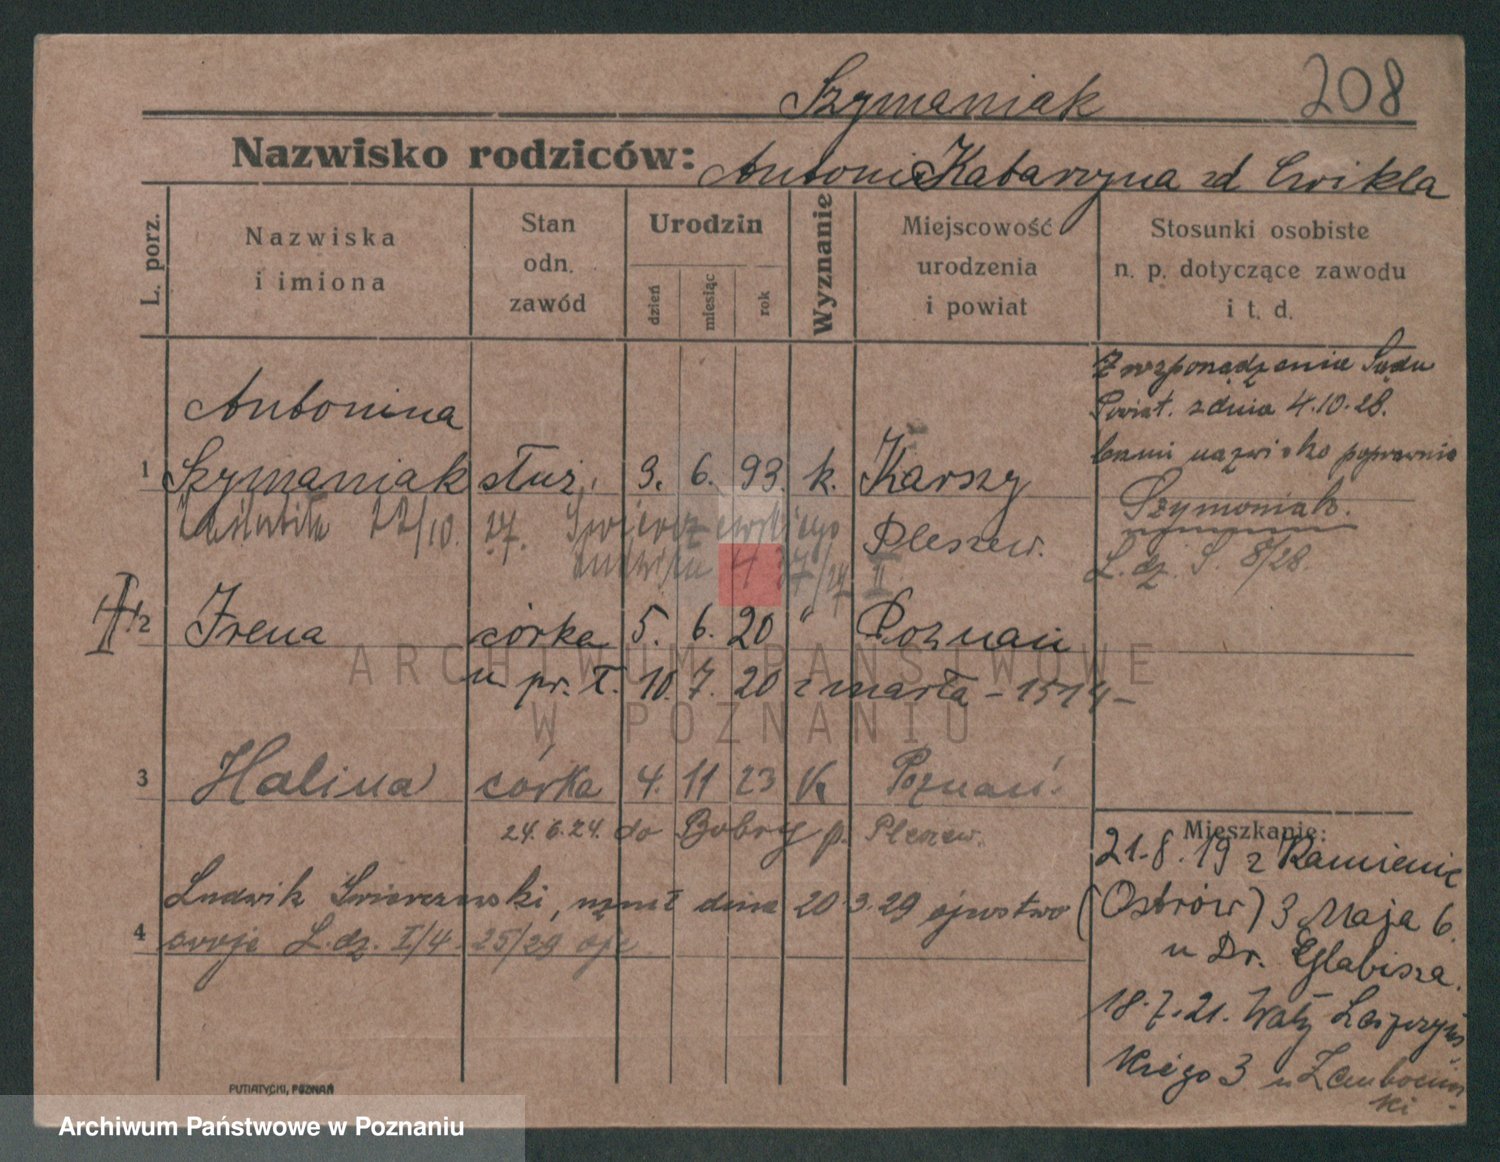 Szymaniak
208
Nazwisko rodziców: Antoni Katarzyna zd Cwikla
L. porz.
Nazwiska
i imiona
Stan
odn.
zawód
Urodzin
dzień
miesiąc
rok
Wyznanie
Miejscowość
urodzenia
i powiat
Stosunki osobiste
n. p. dotyczące zawodu
i t. d.
Z rozporządzenia Sądu
Powiat. z dnia 4.10.28.
brzmi nazwisko poprawnie
Szymoniak.
L. dz. S. 8/28.
Antonina
1 Szymaniak służ. 9. 6. 93 k. Karszy
Pleszew.
Zaślubiła 22/10. 27. Świerczewskiego
Ludwika
2 Irena córka 5. 6. 20 " Poznań
u. pr. T. 10. 7. 20 zmarła - 1514 -
3 Halina córka 4. 11 23 k Poznań.
24.6.24. do Bobry p. Pleszew.
Ludwik Swierczewski, uznał dnia 20 3.29 ojcostwo
4 swoje L. dz. I/4 - 25/29 opc
Mieszkanie:
21.8.19 z Kamienic
(Ostrów) 3 Maja 6.
u Dr. Glabisza.
18.7.21. Wały
kiego 3 u
PUTIATYCKI, POZNAŃ
ARCHIWUM PAŃSTWOWE
W POZNANIU
Archiwum Państwowe w Poznaniu